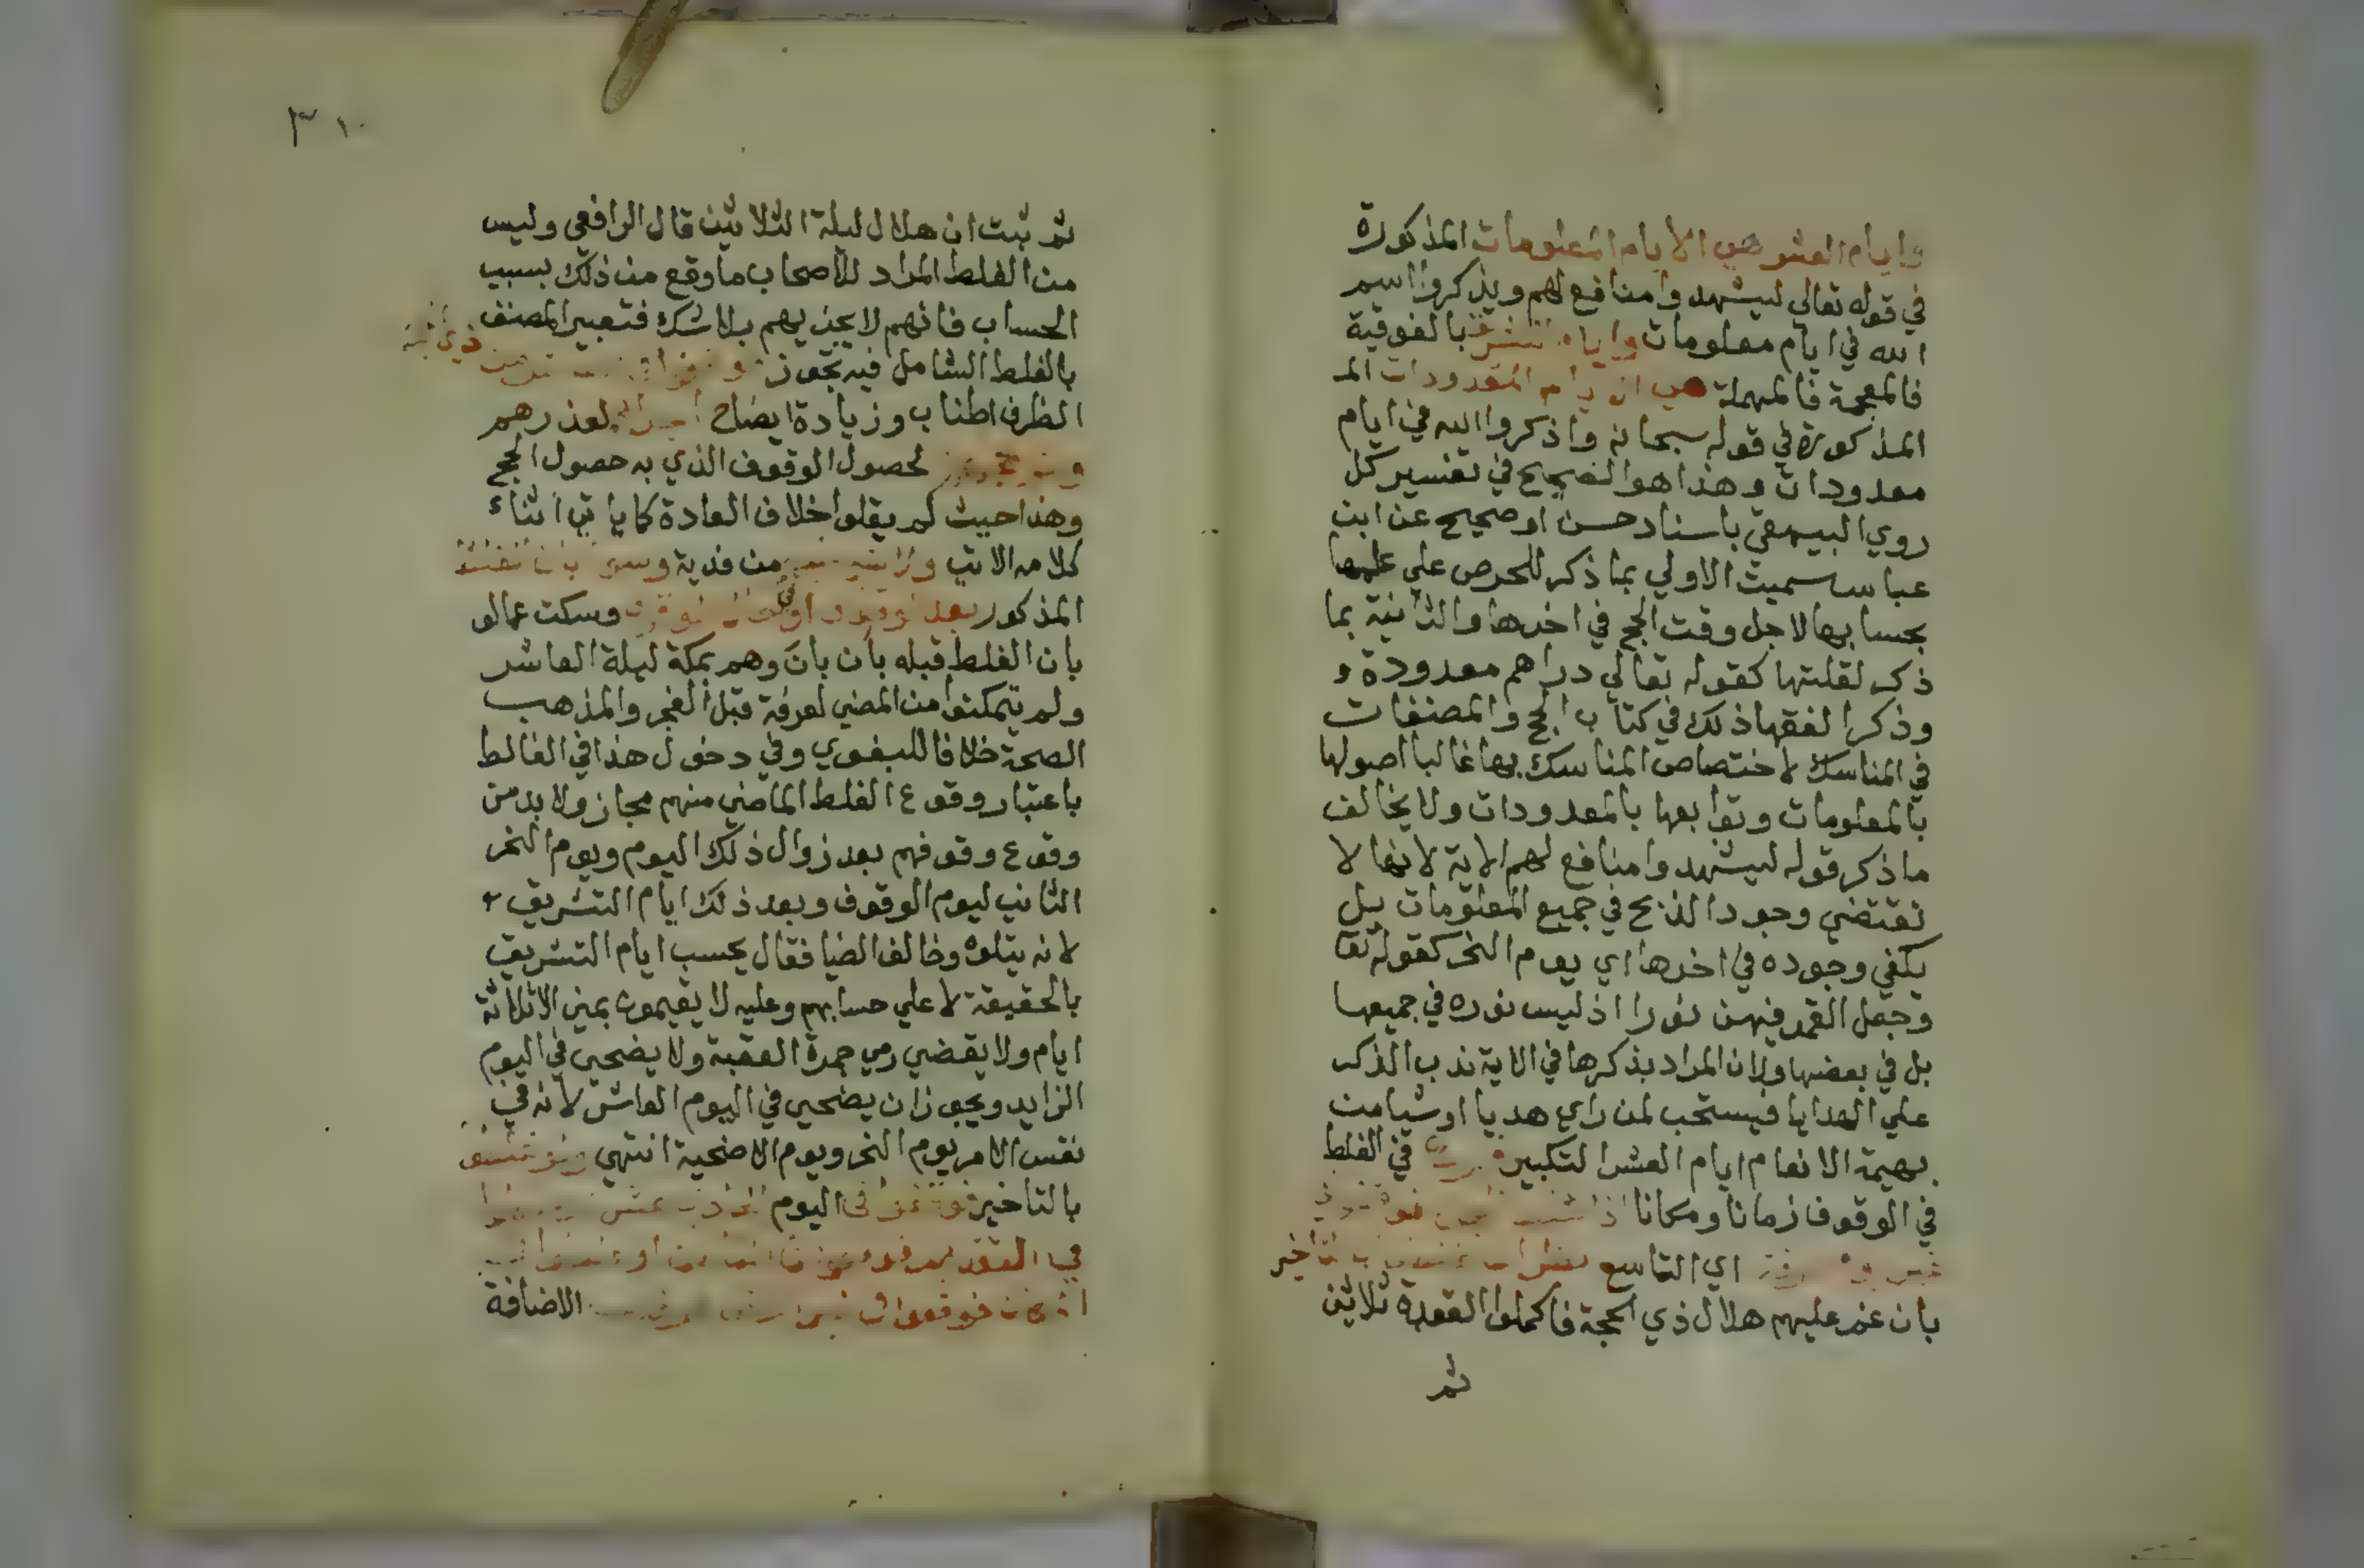 وايام العشر هي الايام المعلومات المذكورة
في قوله تعالي ليشهدوا منافع لهم ويذكروا اسم
الله في ايام معلومات وايام التشرق بالفوقية
فالمعجمة فالمهملة هي الايام المعدودات المـ
المذكورة في قوله سبحانه واذكروا الله في ايام
معدودات وهذا هو الصحيح في تفسير كل
روي البيهقي باسناد حسن او صحيح عن ابن
عباس سميت الاولي بما ذكر للحرص علي علمها
بحسابها لاجل وقت الحج في اخرها والثانية بما
ذكر لقلتها كقوله تعالي دراهم معدودة و
وذكر الفقها ذلك في كتاب الحج والمصنفات
في المناسك لاختصاص المناسك بها غالبا اصولها
بالمعلومات وتوابعها بالمعدودات ولا يخالف
ما ذكر قوله ليشهدوا منافع لهم الاية لانها لا
تقتضي وجود الذبح في جميع المعلومات بل
يكفي وجوده في اخرها اي يوم النحر كقوله تعا
وجعل القمر فيهن نورا اذ ليس نوره في جميعها
بل في بعضها ولان المراد بذكرها في الاية ندب الذكر
علي الهدايا فيستحب لمن راي هديا او شيا من
بهيمة الانعام ايام العشر التكبير في الغلط
في الوقوف زمانا ومكانا اذا
اي التاسع
بان غم عليهم هلال ذي الحجة فاكملوا القعدة ثلاثين
ثم
٣١٠
ثم ثبت ان هلال ليلة الثلاثين قال الرافعي وليس
من الغلط المراد للاصحاب ما وقع من ذلك بسبب
الحساب فانهم لا يجزيهم بلا شك فتعبير المصنف
بالغلط الشامل فيه تجوز
الظرف اطناب وزيادة ايضاح لعذرهم
لحصول الوقوف الذي به حصول الحج
وهذا حيث لم يقلوا خلاف العادة كما ياتي اثناء
كلامه الاتي من فدية وسوا
المذكور بعد او وسكت عما لو
بان الغلط قبله بان بان وهم بمكة ليلة العاشر
ولم يتمكنوا من المضي لعرفة قبل الفجر والمذهب
الصحة خلافا للبغوي وفي دخول هذا في الغالط
باعتبار وقوع الغلط الماضي منهم مجاز ولا بد من
وقوع وقوفهم بعد زوال ذلك اليوم ويوم النحر
الثاني ليوم الوقوف وبعد ذلك ايام التشريق
لانه يتلوه وخالف الضيا فقال يحسب ايام التشريق
بالحقيقة لا علي حسابهم وعليه لا يقيمون بمني الاثلاثة
ايام ولا يقضي رمي جمرة العقبة ولا يضحي في اليوم
الزايد ويجوز ان يضحي في اليوم العاشر لانه في
نفس الامر يوم النحر ويوم الاضحية انتهي
بالتاخير في اليوم
الاضافة